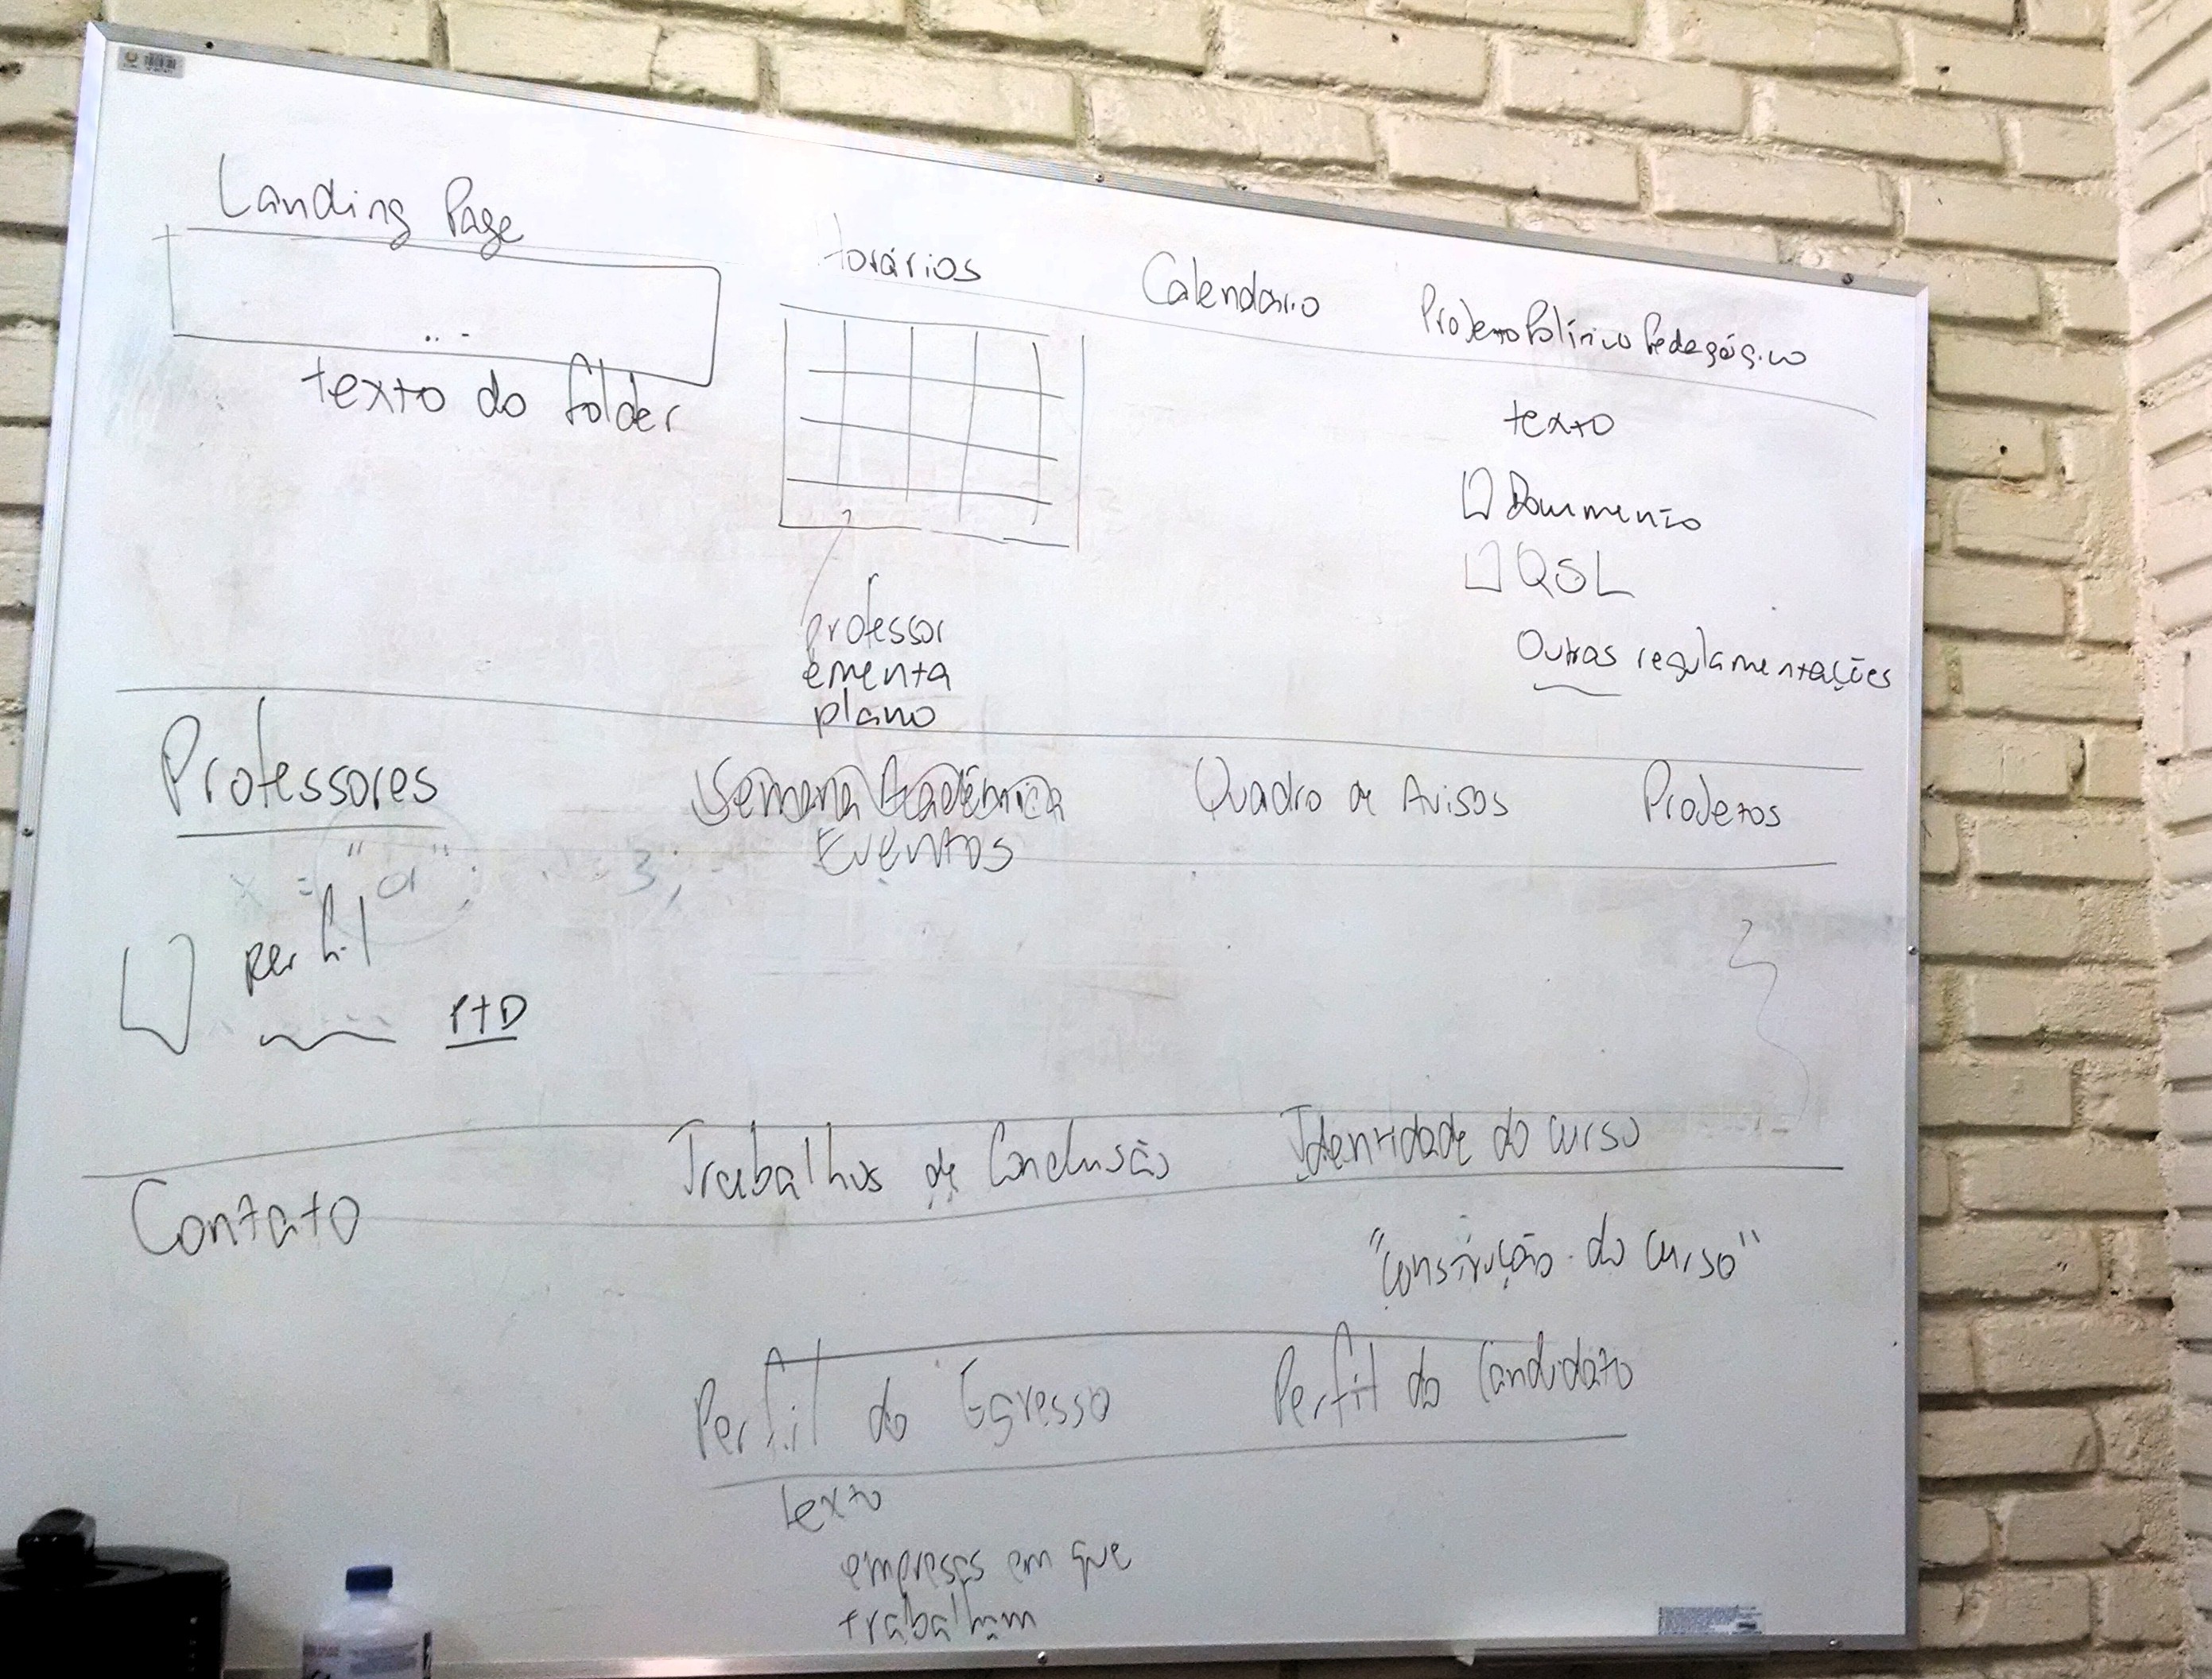 Landing Page
texto do folder
Horários
professor
ementa
plano
Calendário
Projeto Político Pedagógico
texto
Documento
QSL
Outras regulamentações
Professores
"a"
perfil
PTD
Semana Acadêmica
Eventos
Quadro de Avisos
Projetos
Contato
Trabalhos de Conclusão
Identidade do curso
"construção do curso"
Perfil do Egresso
texto
empresas em que
trabalham
Perfil do Candidato